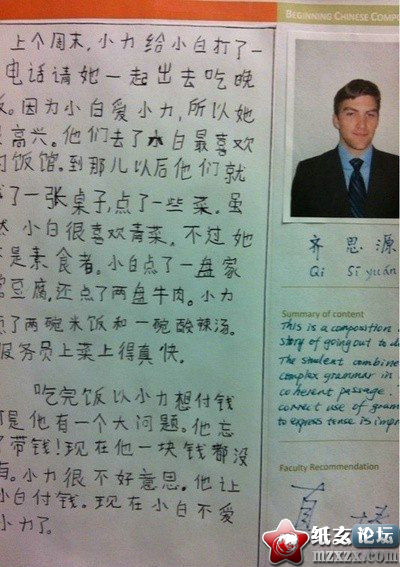 上个周末，小力给小白打了一
电话请她一起出去吃晚
。因为小白爱小力，所以她
高兴。他们去了小白最喜欢
饭馆。到那儿以后他们就
了一张桌子，点了一些菜。虽
小白很喜欢青菜，不过她
是素食者。小白点了一盘家
豆腐，还点了两盘牛肉。小力
了两碗米饭和一碗酸辣汤。
服务员上菜上得真快。
吃完饭以小力想付钱
是他有一个大问题。他忘
带钱！现在他一块钱都没
有。小力很不好意思。他让
小白付钱。现在小白不爱
小力了。
BEGINNING CHINESE COMPO
齐思源
Qi Sīyuán
Summary of content
This is a composition
story of going out to di
The student combine
complex grammar in
coherent passage.
correct use of gram
to express tense is impr
Faculty Recommendation
纸玄论坛
mzxzx.com